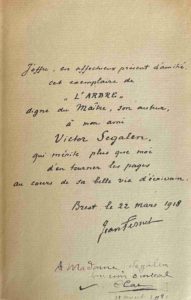 J'offre, en affectueux présent d'amitié,
cet exemplaire de
"L'ARBRE"
digne du Maître, son auteur,
à mon ami
Victor Segalen,
qui mérite plus que moi
d'en tourner les pages
au cours de sa belle vie d'écrivain.
Brest le 22 mars 1918
Jean Fernet
A Madame Segalen